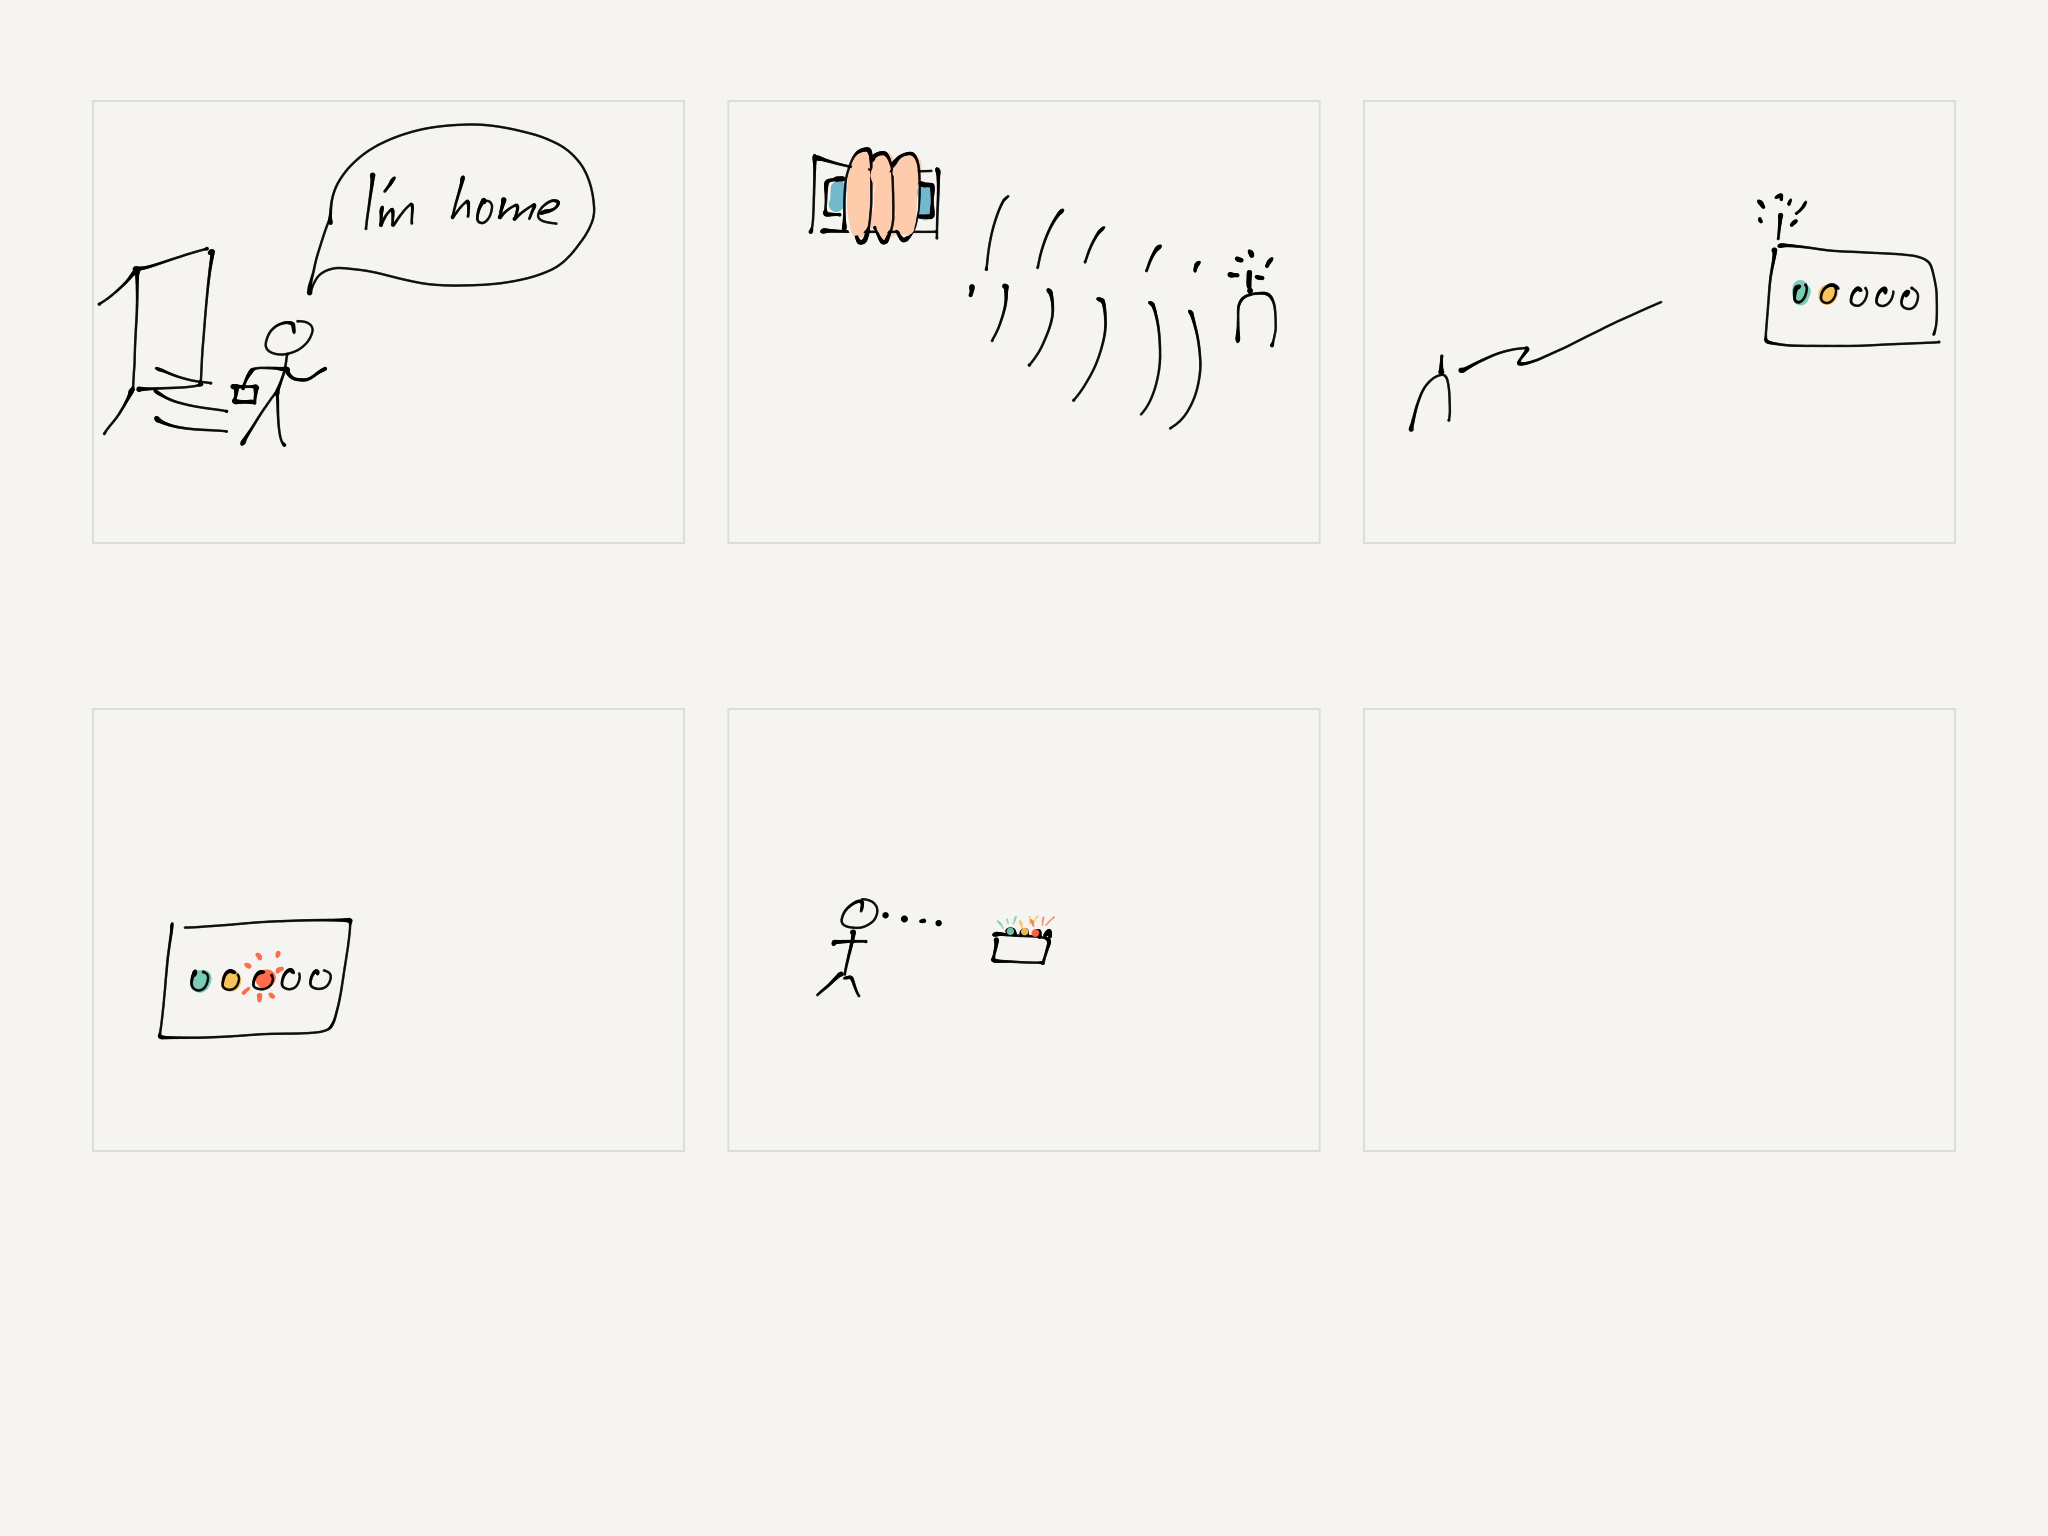 I'm home